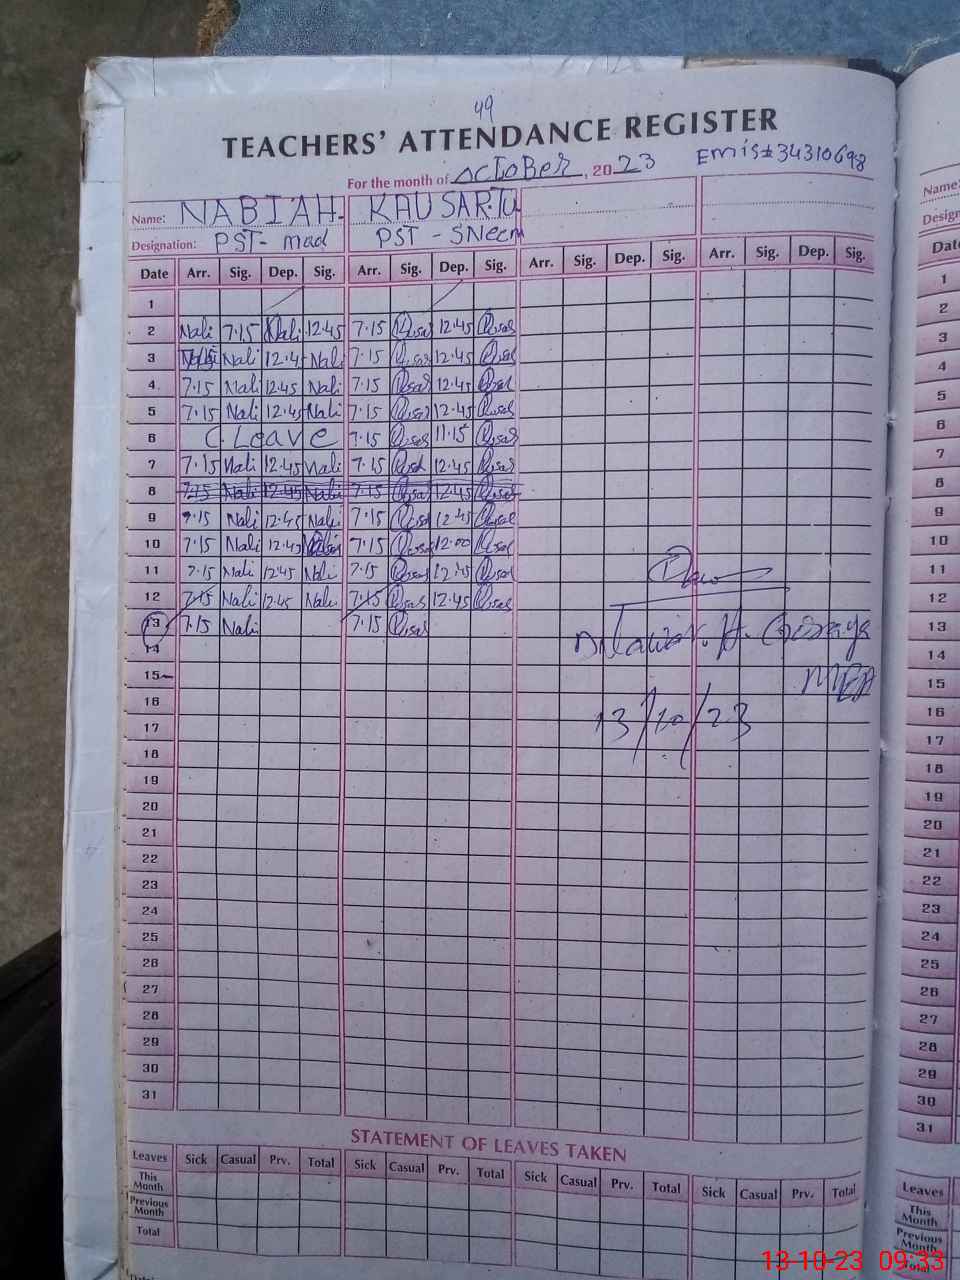 49
TEACHERS' ATTENDANCE REGISTER
For the month of October, 2023 Emis# 34310698
Name: NABIAH. KAUSAR.TU
Designation: PST - mad PST - SNeem
Date Arr. Sig. Dep. Sig. Arr. Sig. Dep. Sig. Arr. Sig. Dep. Sig. Arr. Sig. Dep. Sig.
1
2 Nali 7.15 Nali 12.45 7.15 12.45
3 Nali 12.45 Nali 7.15 12.45
4 7.15 Nali 12.45 Nali 7.15 12.45
5 7.15 Nali 12.45 Nali 7.15 12.45
6 C. Leave 7.15 11.15
7 7.15 Nali 12.45 Nali 7.15 12.45
8 7.15 Nali 12.45 Nali 7.15 12.45
9 7.15 Nali 12.45 Nali 7.15 12.45
10 7.15 Nali 12.45 7.15 12.00
11 7.15 Nali 12.45 Nali 7.15 12.45
12 7.15 Nali 12.45 Nali 7.15 12.45
13 7.15 Nali 7.15
14
15
MEA
16
13/10/23
17
18
19
20
21
22
23
24
25
26
27
28
29
30
31
STATEMENT OF LEAVES TAKEN
Leaves Sick Casual Prv. Total Sick Casual Prv. Total Sick Casual Prv. Total Sick Casual Prv. Total
This Month
Previous Month
Total
Name:
Design
Date
1
2
3
4
5
6
7
8
9
10
11
12
13
14
15
16
17
18
19
20
21
22
23
24
25
26
27
28
29
30
31
Leaves
This Month
Previous Month
Total
13-10-23 09:33